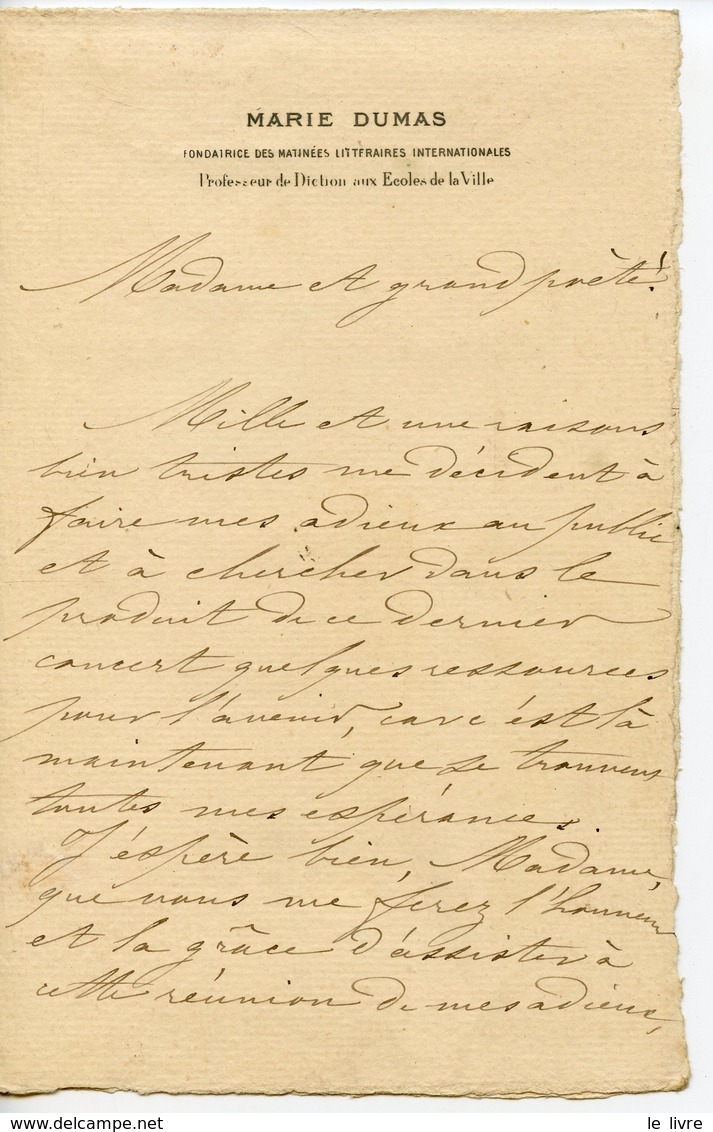 MARIE DUMAS
FONDATRICE DES MATINÉES LITTÉRAIRES INTERNATIONALES
Professeur de Diction aux Ecoles de la Ville
Madame et grand poète!
Mille et une raisons
bien tristes me décident à
faire mes adieux au public
et à chercher dans le
produit de ce dernier
concert quelques ressources
pour l'avenir, car c'est là
maintenant que se trouvent
toutes mes espérances.
J'espère bien, Madame,
que vous me ferez l'honneur
et la grâce d'assister à
cette réunion de mes adieux,
le livre